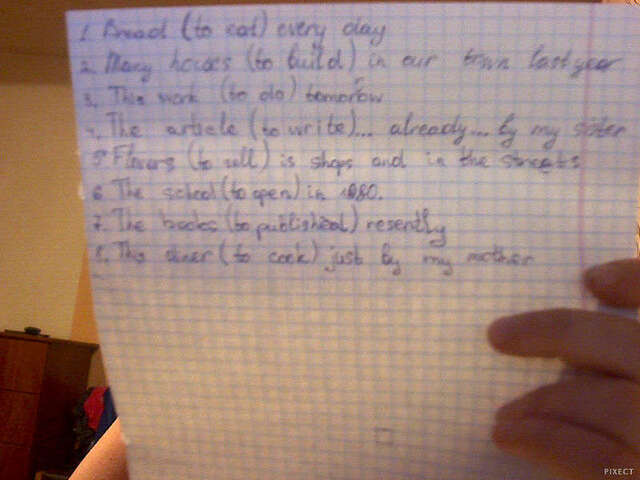 1. Bread (to eat) every day
2. Many houses (to build) in our town last year
3. This work (to do) tomorow
4. The article (to write)... already... by my sister
5 Flovers (to sell) is shops and in the streets
6. The school (to open) in 1980.
7. The books (to published) resently
8. This diner (to cook) just by my mother
PIXECT